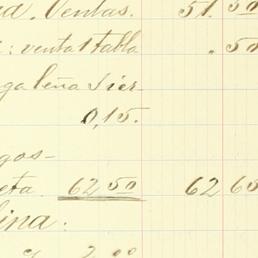 da. Ventas. 51. 50
: venta 1 tabla . 50
ga leña Sier
0,15.
gos-
eta. 62 50 62 65
lina: